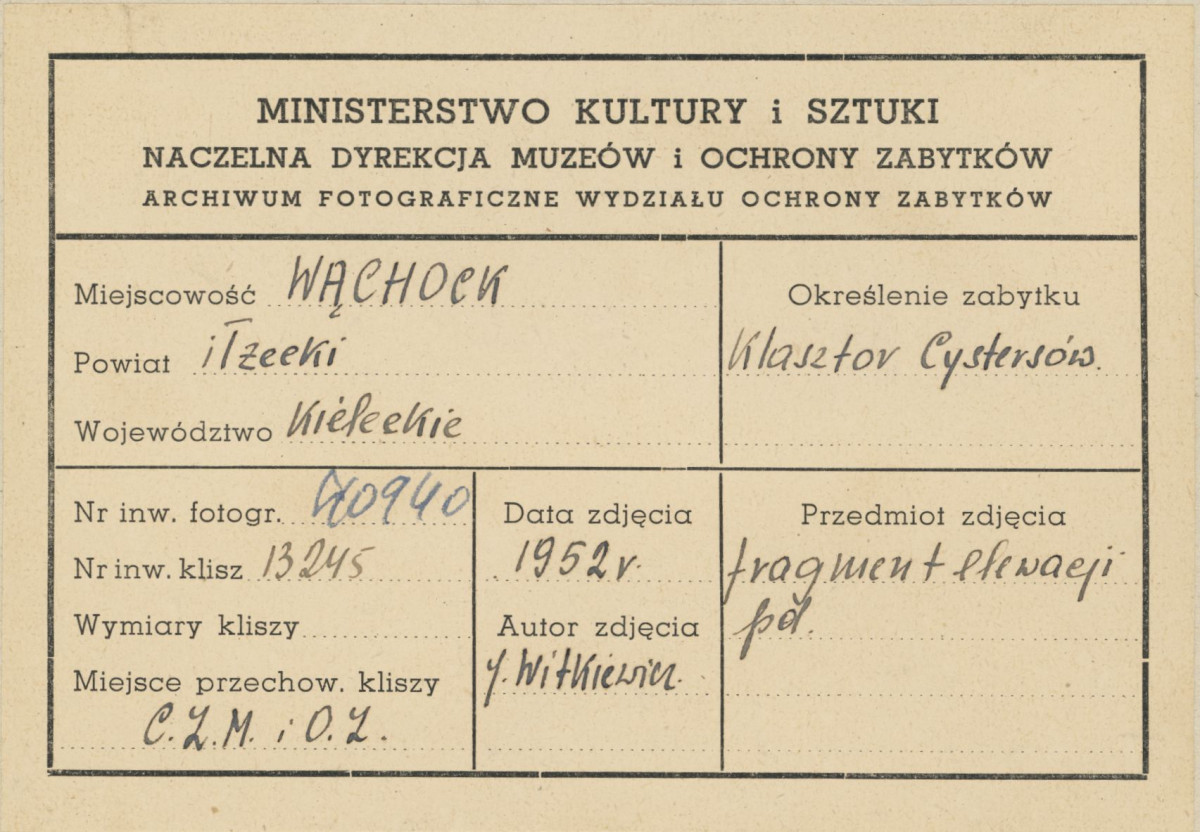 MINISTERSTWO KULTURY i SZTUKI
NACZELNA DYREKCJA MUZEÓW i OCHRONY ZABYTKÓW
ARCHIWUM FOTOGRAFICZNE WYDZIAŁU OCHRONY ZABYTKÓW
Miejscowość WĄCHOCK
Powiat iłżecki
Województwo Kieleckie
Określenie zabytku
Klasztor Cystersów.
Nr inw. fotogr. 40940
Nr inw. klisz 13245
Wymiary kliszy
Miejsce przechow. kliszy
C.Z.M. i O.Z.
Data zdjęcia
1952 r.
Autor zdjęcia
J. Witkiewicz.
Przedmiot zdjęcia
fragment elewacji
pd.